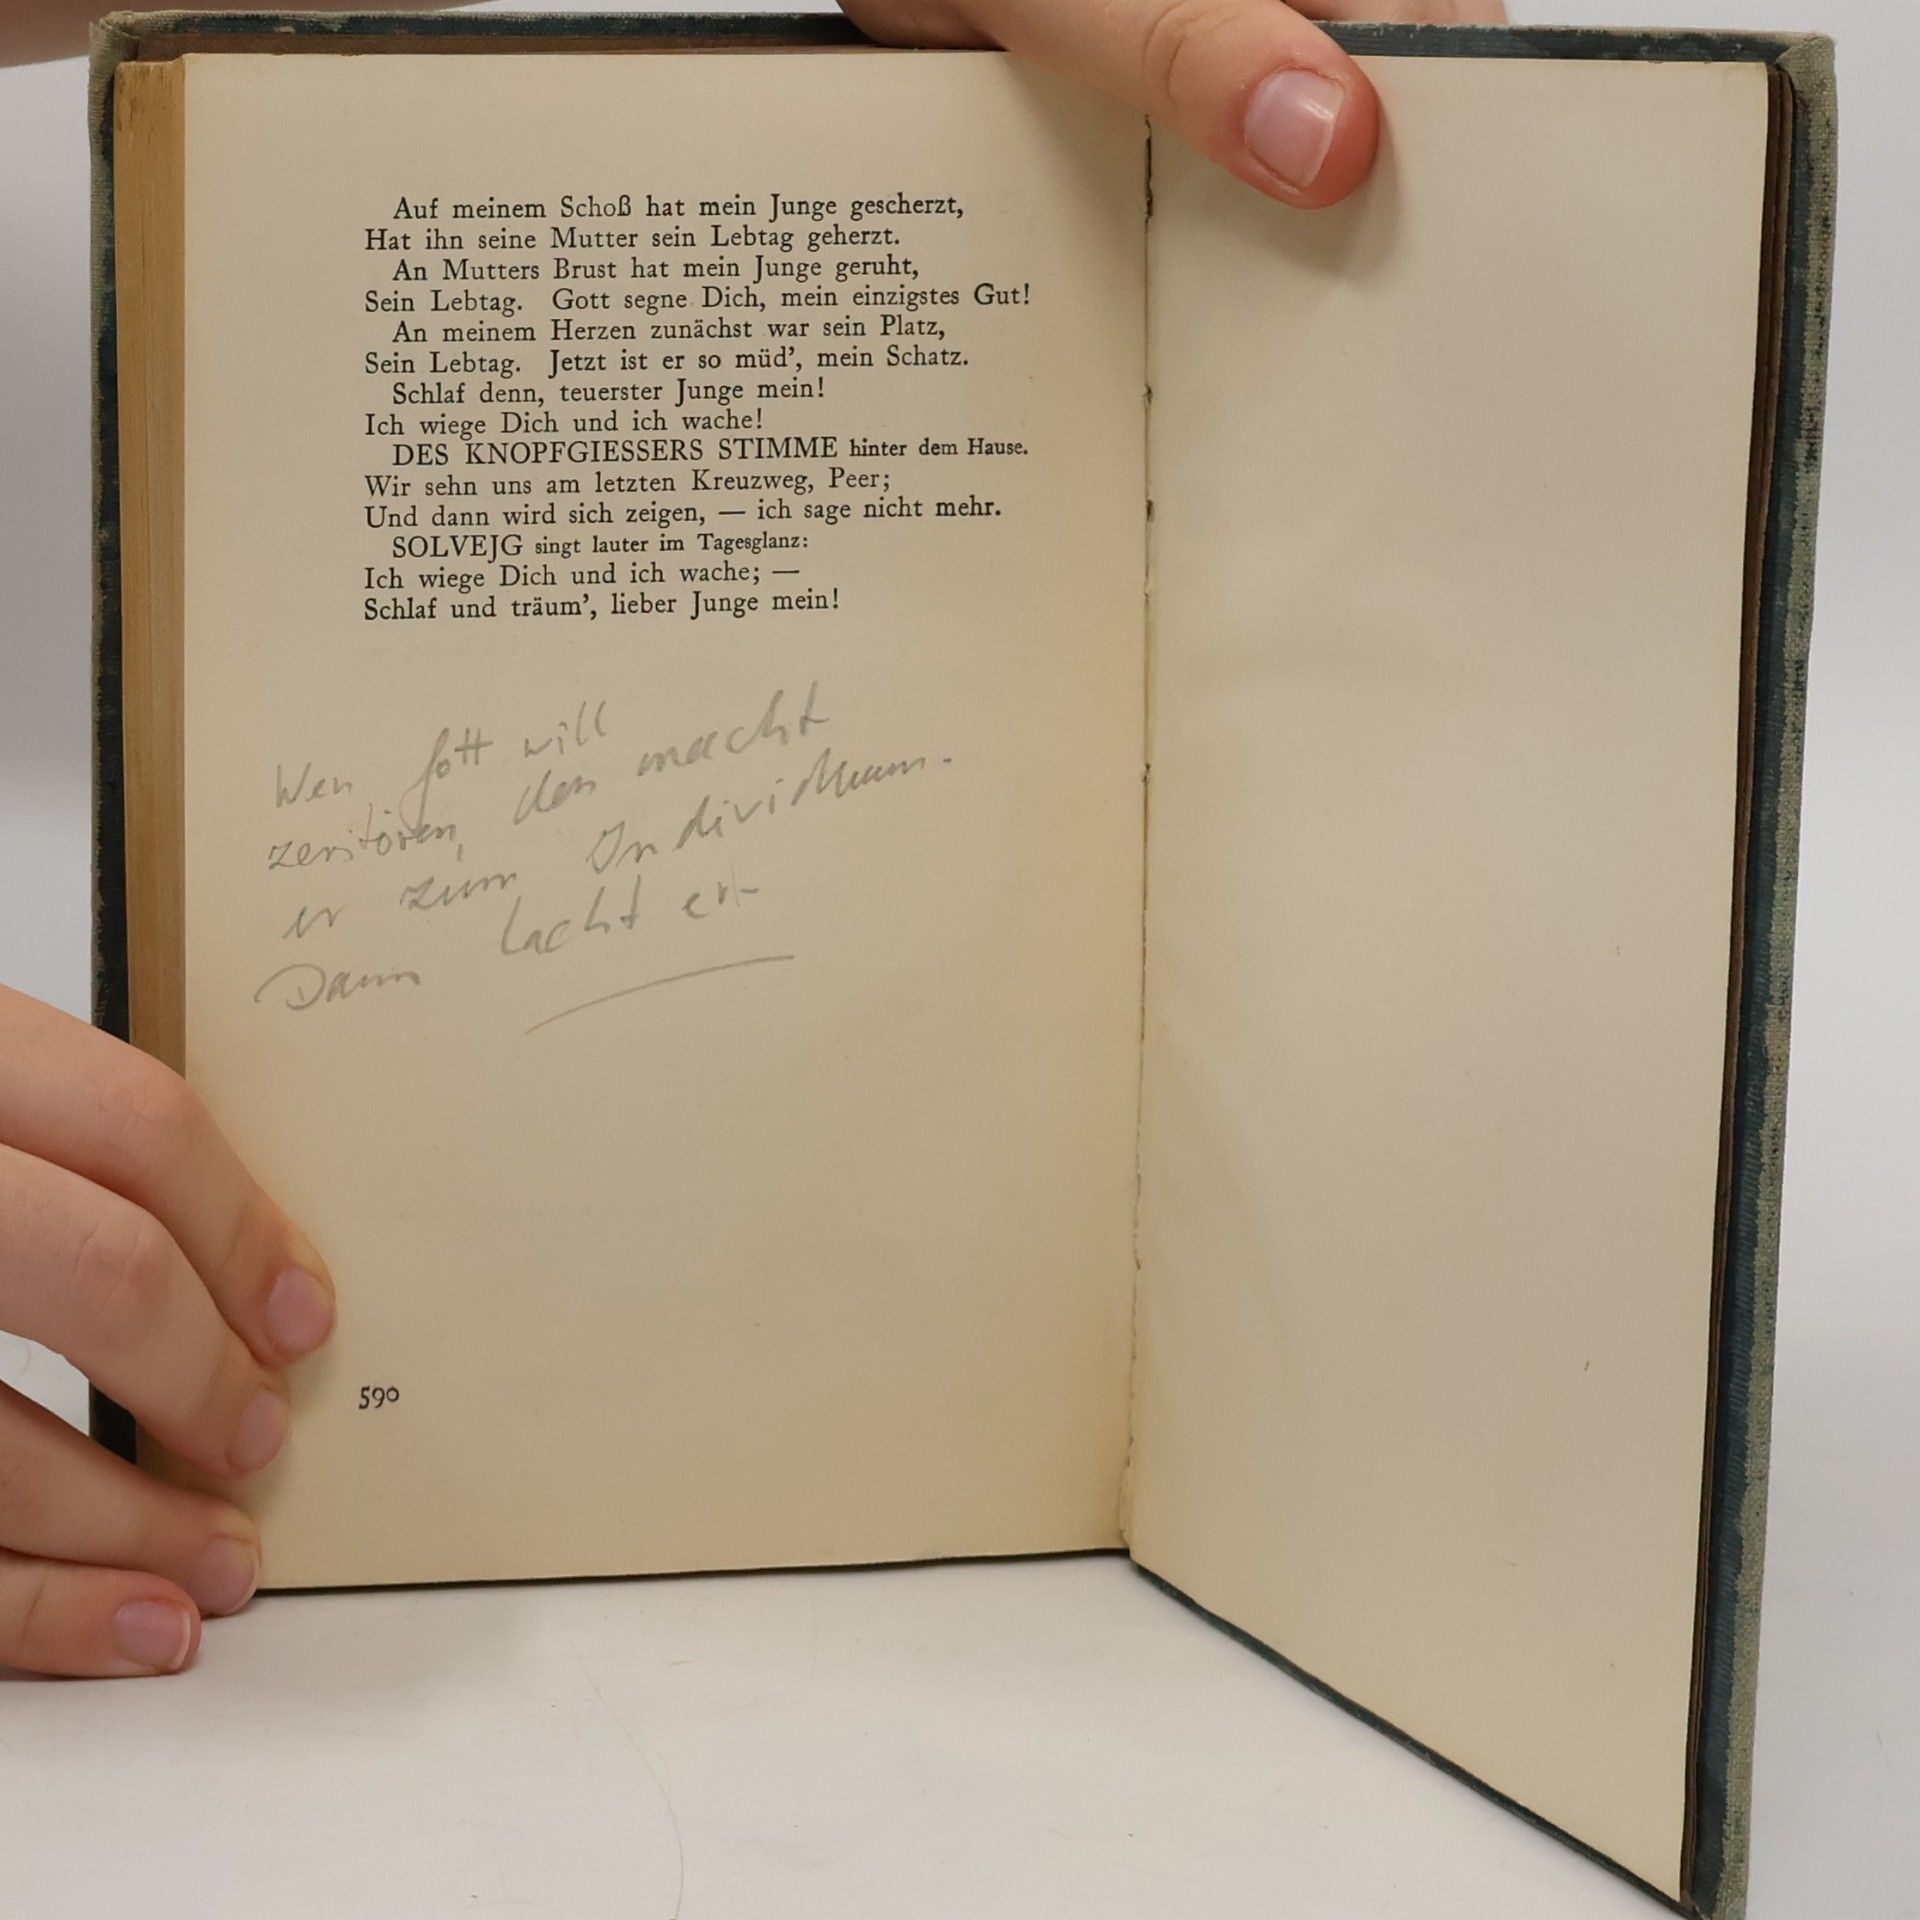 Auf meinem Schoß hat mein Junge gescherzt,
Hat ihn seine Mutter sein Lebtag geherzt.
An Mutters Brust hat mein Junge geruht,
Sein Lebtag. Gott segne Dich, mein einzigstes Gut!
An meinem Herzen zunächst war sein Platz,
Sein Lebtag. Jetzt ist er so müd’, mein Schatz.
Schlaf denn, teuerster Junge mein!
Ich wiege Dich und ich wache!
DES KNOPFGIESSERS STIMME hinter dem Hause.
Wir sehn uns am letzten Kreuzweg, Peer;
Und dann wird sich zeigen, — ich sage nicht mehr.
SOLVEJG singt lauter im Tagesglanz:
Ich wiege Dich und ich wache; —
Schlaf und träum’, lieber Junge mein!
Wen Gott will
zerstören, den macht
er zum Individuum.
Dann lacht er
590